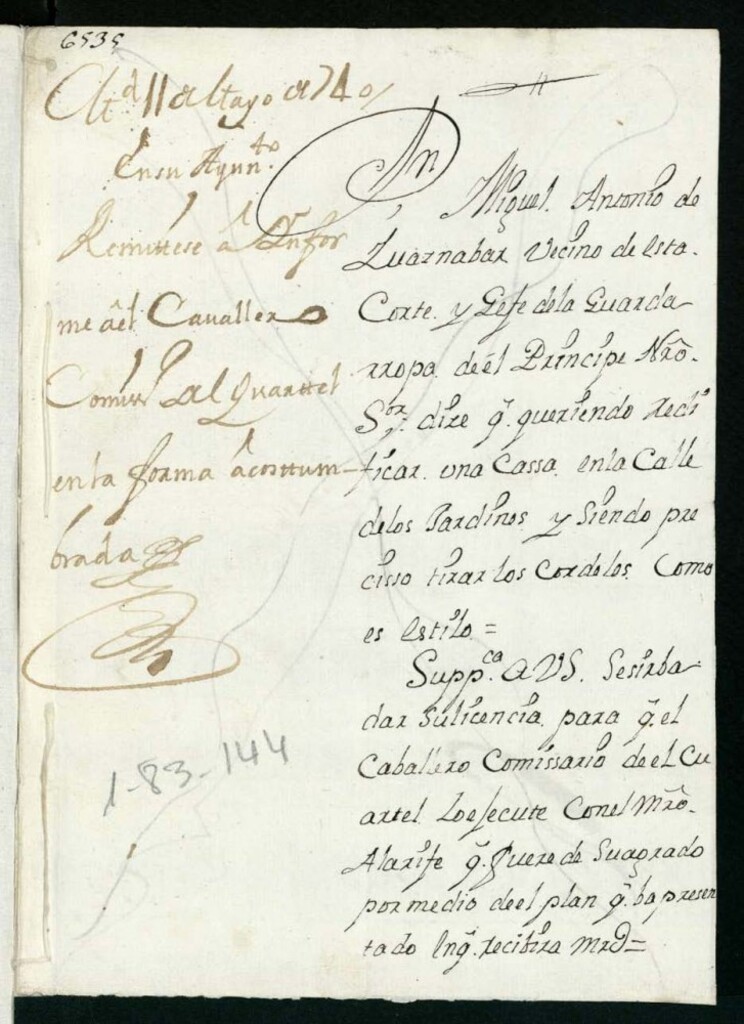 6535
Md 11 de Mayo de 740
En su Ayunto.
Remittese à Ynfor
me àel Cavallero
Comissº del Quarttel
en la forma acosttum-
brada
1-83-144
Dn Miguel Antonio de
Zuaznabar Vecino de esta
Corte y Gefe de la Guarda
rropa de él Principe Nrô.
Sor. dize q. queriendo redi
ficar una Cassa en la Calle
de los Jardinos y Siendo pre
cisso tirar los Cordeles Como
es estilo =
Suppca. a VS. Se sirba
dar su licencia para q. el
Caballero Comissario de el Cu
artel lo ejecute Con el Mrô.
Alarife q. fuere de Su agrado
por medio de el plan q. ba presen
tado en q. recibira mrd=